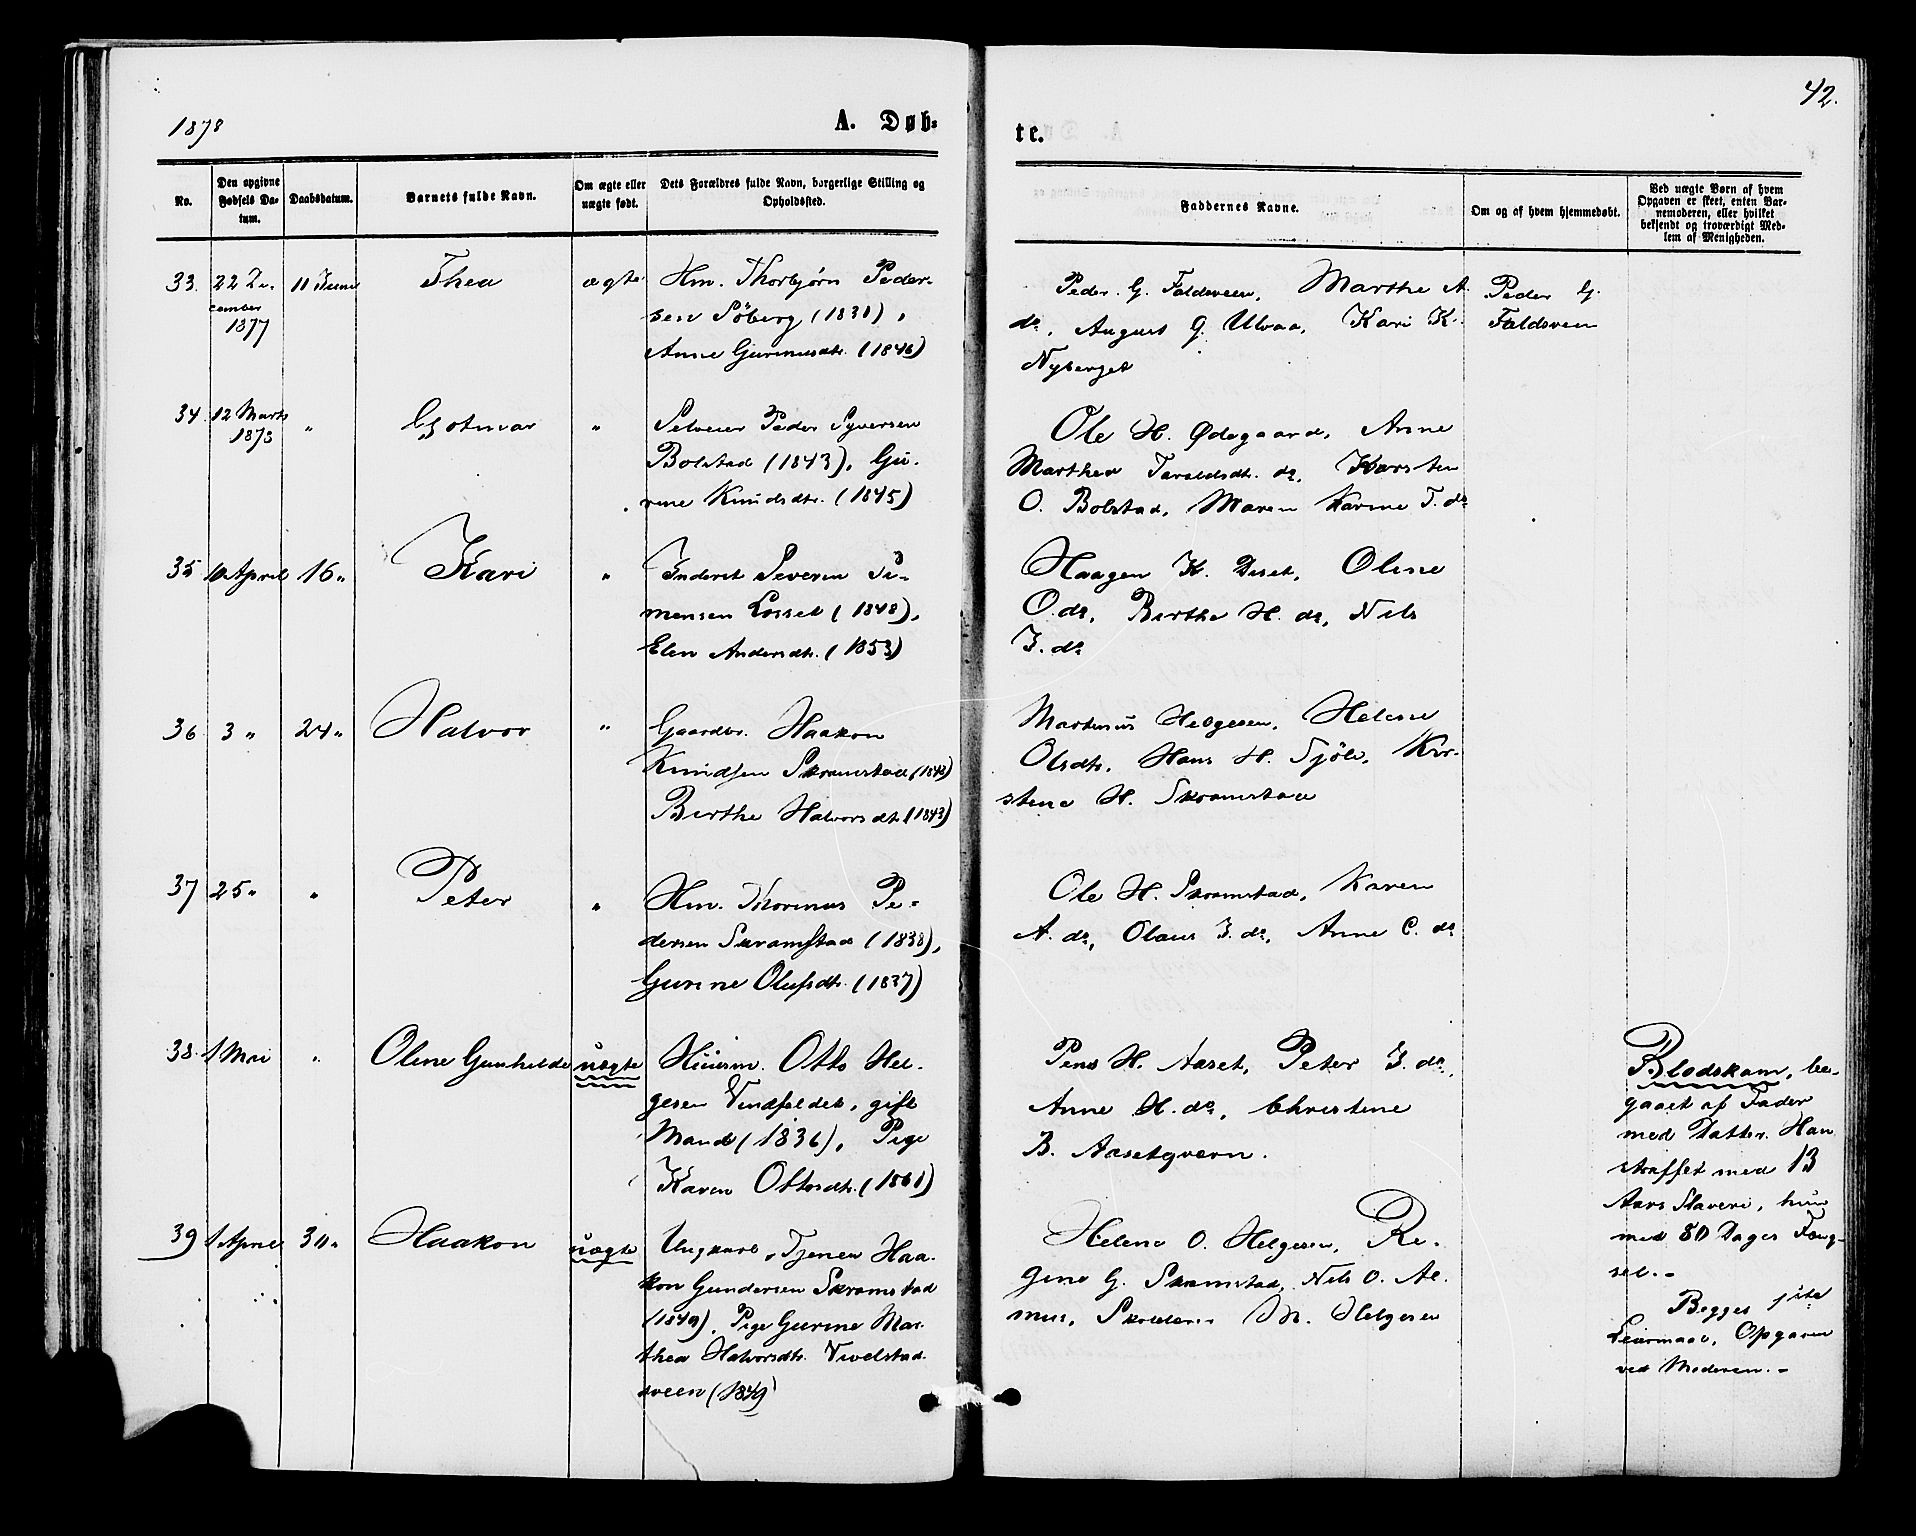 42.
1878
A. Døb=
te.
No.
Den opgivne
Fødsels Da-
tum.
Daabsdatum.
Barnets fulde Navn.
Om ægte eller
uægte født.
Dets Forældres fulde Navn, borgerlige Stilling og
Opholdssted.
Faddernes Navne.
Om og af hvem hjemmedøbt.
Ved uægte Børn af hvem
Opgaven er skeet, enten Bar-
nemoderen, eller hvilket
bekjendt og troværdigt Med-
lem af Menigheden.
33.
22 De-
cember
1877
Thea
ægte
Hm. Thorbjørn Peder-
sen Söberg (1831),
Anne Gurinusdtr. (1846)
Peder G. Foldsveen, Marthe A.
do, August G. Ulvaa, Kari K.
Nyberget
Peder G.
Foldsveen
34.
12 Marts
1878
"
Gotmar
"
Selveier Peder Syversen
Bolstad (1843), Gu-
rine Knudsdtr. (1845)
Ole H. Ødegaard, Anne
Marthea Taraldsdtr. do, Karsten
O. Bolstad, Maren Karine T. do
35
10 April
16 "
Kari
"
Inderst Severin Si-
mensen Losset (1848),
Elen Andersdtr. (1853)
Haagen K. Deset, Oline
O. do, Birthe H. do, Nils
I. do
36
3 "
24 "
Halvor
"
Gaardbr. Haakon
Knudsen Skramstad (1843)
Birthe Halvorsdtr. (1843)
Martinus Helgesen, Helene
Olsdtr, Hans H. Sjöli, Kir-
stine H. Skramstad
37
25 "
"
Peter
"
Hm. Thorinus Pe-
dersen Skramstad (1838),
Gurine Olufsdtr. (1837)
Ole H. Skramstad, Karen
A. do, Olaus I. do, Anne C. do
38.
1 Mai
"
Oline Gunhilde
uægte
Huusm. Otto Hel-
gesen Vindfeldet, gift
Mand (1836), Pige
Karen Ottosdtr. (1861)
H. Aaset, Peter I. do,
Anne H. do, Christine
B. Aasetqvern.
Blodskam, be-
gaaet af Fader
med Datter. Han
straffet med 13
Aars Slaveri, hun
med 80 Dages Fæng-
sel. -
39
1 April
30 "
Haakon
uægte
Ungkarl, Tjener Haa-
kon Gundersen Skramstad
(1849), Pige Gurine Mar-
thea Halvorsdtr. Nivelstad-
sveen (1849)
Helene O. Helgesen, Re-
gine G. Skramstad, Nils O. Al-
mus, M. Helgesen
Begges 1ste
Leiermaal, Opgaven
ved Moderen. -